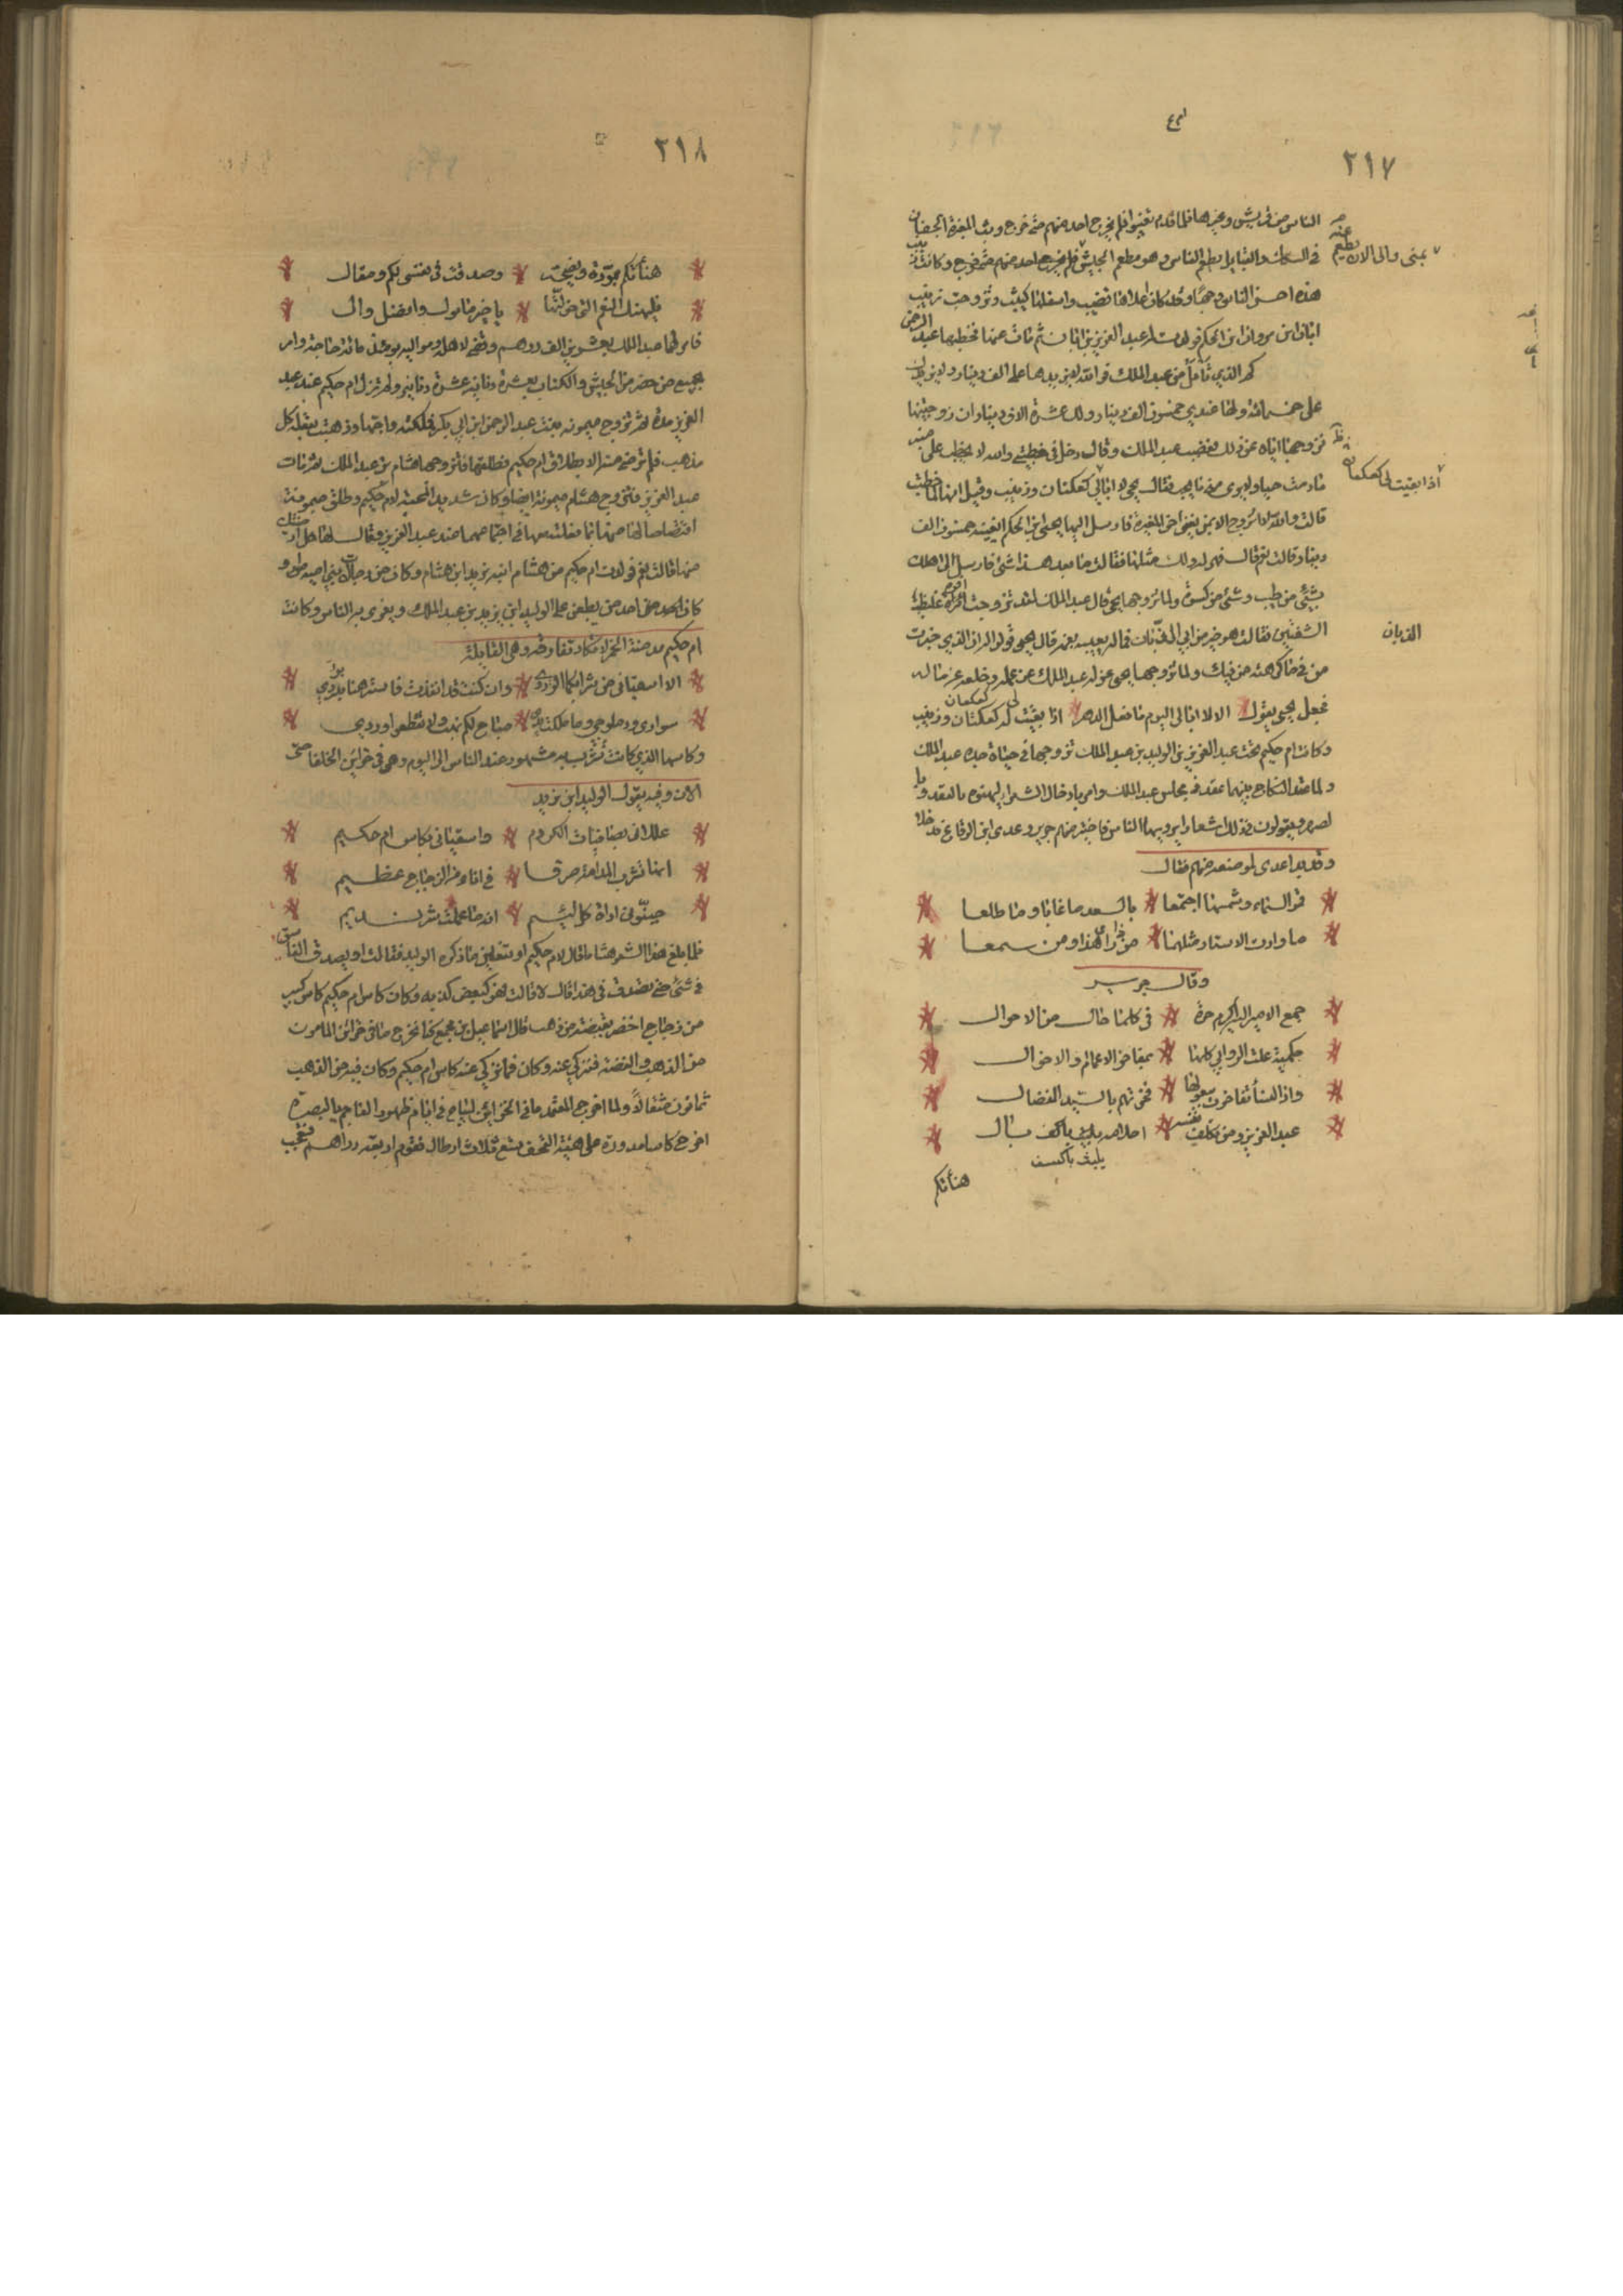 ٢١٧
الناس من قريش وغيرها فلما قدم تغيبوا فلم يخرج احد منهم حتى خرج وبث المغيرة الجفان
في السكك والقبايل يطعم الناس وهو مطعم الجيش فلم يخرج احد منهم حتى خرج وكانت زينب
يمنى والى الان يطعم عنه
هذه احسن الناس وجها وقدا كان اعلاها قضيب واسفلها كثيب وتزوجت زينب
ابان ابن مروان ابن الحكم فولدت له عبد العزيز بن ابان ثم مات عنها فخطبها عبد
كم الذي تأمل من عبد الملك فوالله لا يزيدها على الف دينار ولا يزيدك
على خمسمائة ولها عندي خمسون الف دينار ولك عشرة الاف دينار ان زوجتنيها
فزوجها اياه عند ذلك فغضب عبد الملك وقال دخل في خطبتي والله لا يخطب على منبر
ما دمت حيا ولا يرى مني ما يحب فقال يحيى لا ابالي كعكتان وزينب وقيل انها لما خطبت
اذا بقيت لي كعكتان
قالت والله لا اتزوج الا بمن يغني اخي المغيرة فارسل اليها يحيى ابن الحكم ايغنيه خمسون الف
دينار قالت نعم قال فهي له ولك مثلها فقالت ما بعد هذا شئ فارسل الى اهلك
بشئ من طيب وشئ من كسوة ولما تزوجها يحيى قال عبد الملك لقد تزوجت افوه غليظ
الشفتين فقالت هو خير من ابي الذبان فما له يعيبه بفمه قال يحيى قولوا له ان الذي خبرت
الذبان
من في ما كرهته من فيك ولما تزوجها يحيى عزله عبد الملك عن عمله وخلعه عن ماله
فجعل يحيى يقول الا لا ابالي اليوم ما فعل الدهر اذا بقيت لي كعكتان وزينب
وكانت ام حكيم تحت عبد العزيز بن الوليد بن عبد الملك تزوجها في حياة جده عبد الملك
ولما عقد النكاح بينهما عقد في مجلس عبد الملك وامر بادخال الشعراء ليهنوه بالعقد
ويقولون في ذلك اشعارا يرويها الناس فاختير منهم جرير وعدي ابن الرقاع فدخلا
وبدا عدي لموضعه منهم فقال
قمر السماء وشمسها اجتمعا بالسعد ما غابا وما طلعا
ما وارت الاستار مثلهما من ذا رأى هذا ومن سمعا
وقال جرير
جمع الامير اليه اكرم حرة في كلما حال من الاحوال
حكمية علت الروابي كلها بمفاخر الاعمام والاخوال
واذا النسأ تفاخرت ببعولها فخرتهم بالسيد المفضال
عبد العزيز ومن يكلف نفسه
هنأتكم
٢١٨
هنأتكم بمودة ونصيحة وصدقت في نفسي لكم ومقال
فليهنك النعم التي خولتها يا خير مامول وافضل وال
فامر لهما عبد الملك بعشرين الف درهم وقضى لاهله ومواليه يومئذ مائة حاجة وامر
بجميع من حضر من الجيش والكتاب بعشرة دنانير عشرة دنانير ولم تزل ام حكيم عند عبد
العزيز مدة ثم تزوج ميمونة بنت عبد الرحمن ابن ابي بكر فملكته واحبها وذهبت بقلبه كل
مذهب فلم ترض منه الا بطلاق ام حكيم فطلقها فتزوجها هشام بن عبد الملك ثم مات
عبد العزيز فتزوج هشام ميمونة ايضا وكان شديد المحبة لام حكيم وطلق ميمونة
اقتصاصا لها منها بما فعلته بها في اجتماعهما عند عبد العزيز وقال لها هل ارضيتك
منها قالت نعم فولدت ام حكيم من هشام ابنه يزيد ابن هشام وكان من رجالات بني امية
كان احد من يطعن على الوليد ابن يزيد بن عبد الملك ويغري به الناس وكانت
ام حكيم مدمنة الخمر لا تكاد تفارقه وهي القائلة
الا اسقياني من شرابكما الوردي وان كنت قد انفدت فاسترهنا بردي
سواري ودملوجي وما ملكت يدي مباح لكم نهب ولا تقطعوا وردي
وكاسها الذي كانت تشرب به مشهور عند الناس الى اليوم وهي في خزاين الخلفا حتى
الان وفيه يقول الوليد ابن يزيد
عللاني بصافيات الكروم واسقياني بكاس ام حكيم
انها تشرب المدامة صرفا في اناء من الزجاج عظيم
جنبوني اداة كل لئيم انه ما علمت شر نديم
فلما بلغ هذا الشعر هشاما قال لام حكيم او تفعلين ما ذكره الوليد فقالت او يصدق الفاسق
في شئ حتى تصدق في هذا قال لا قالت فهو كبعض كذبه وكان كاس ام حكيم كاس كبير
من زجاج اخضر بقبضة من ذهب قال اسماعيل بن مجمع كنا نخرج ما في خزائن المامون
من الذهب والفضة فنزكي عنه وكان فيما نزكي عنه كاس ام حكيم وكان فيه من الذهب
ثمانون مثقالاً ولما اخرج المعتمد ما في الخزاين ليباع في ايام ظهور الناجم بالبصرة
اخرج كاسا مدورة على هيئة القحف يسع ثلاث ارطال فقوم اربعة دراهم فتعجب